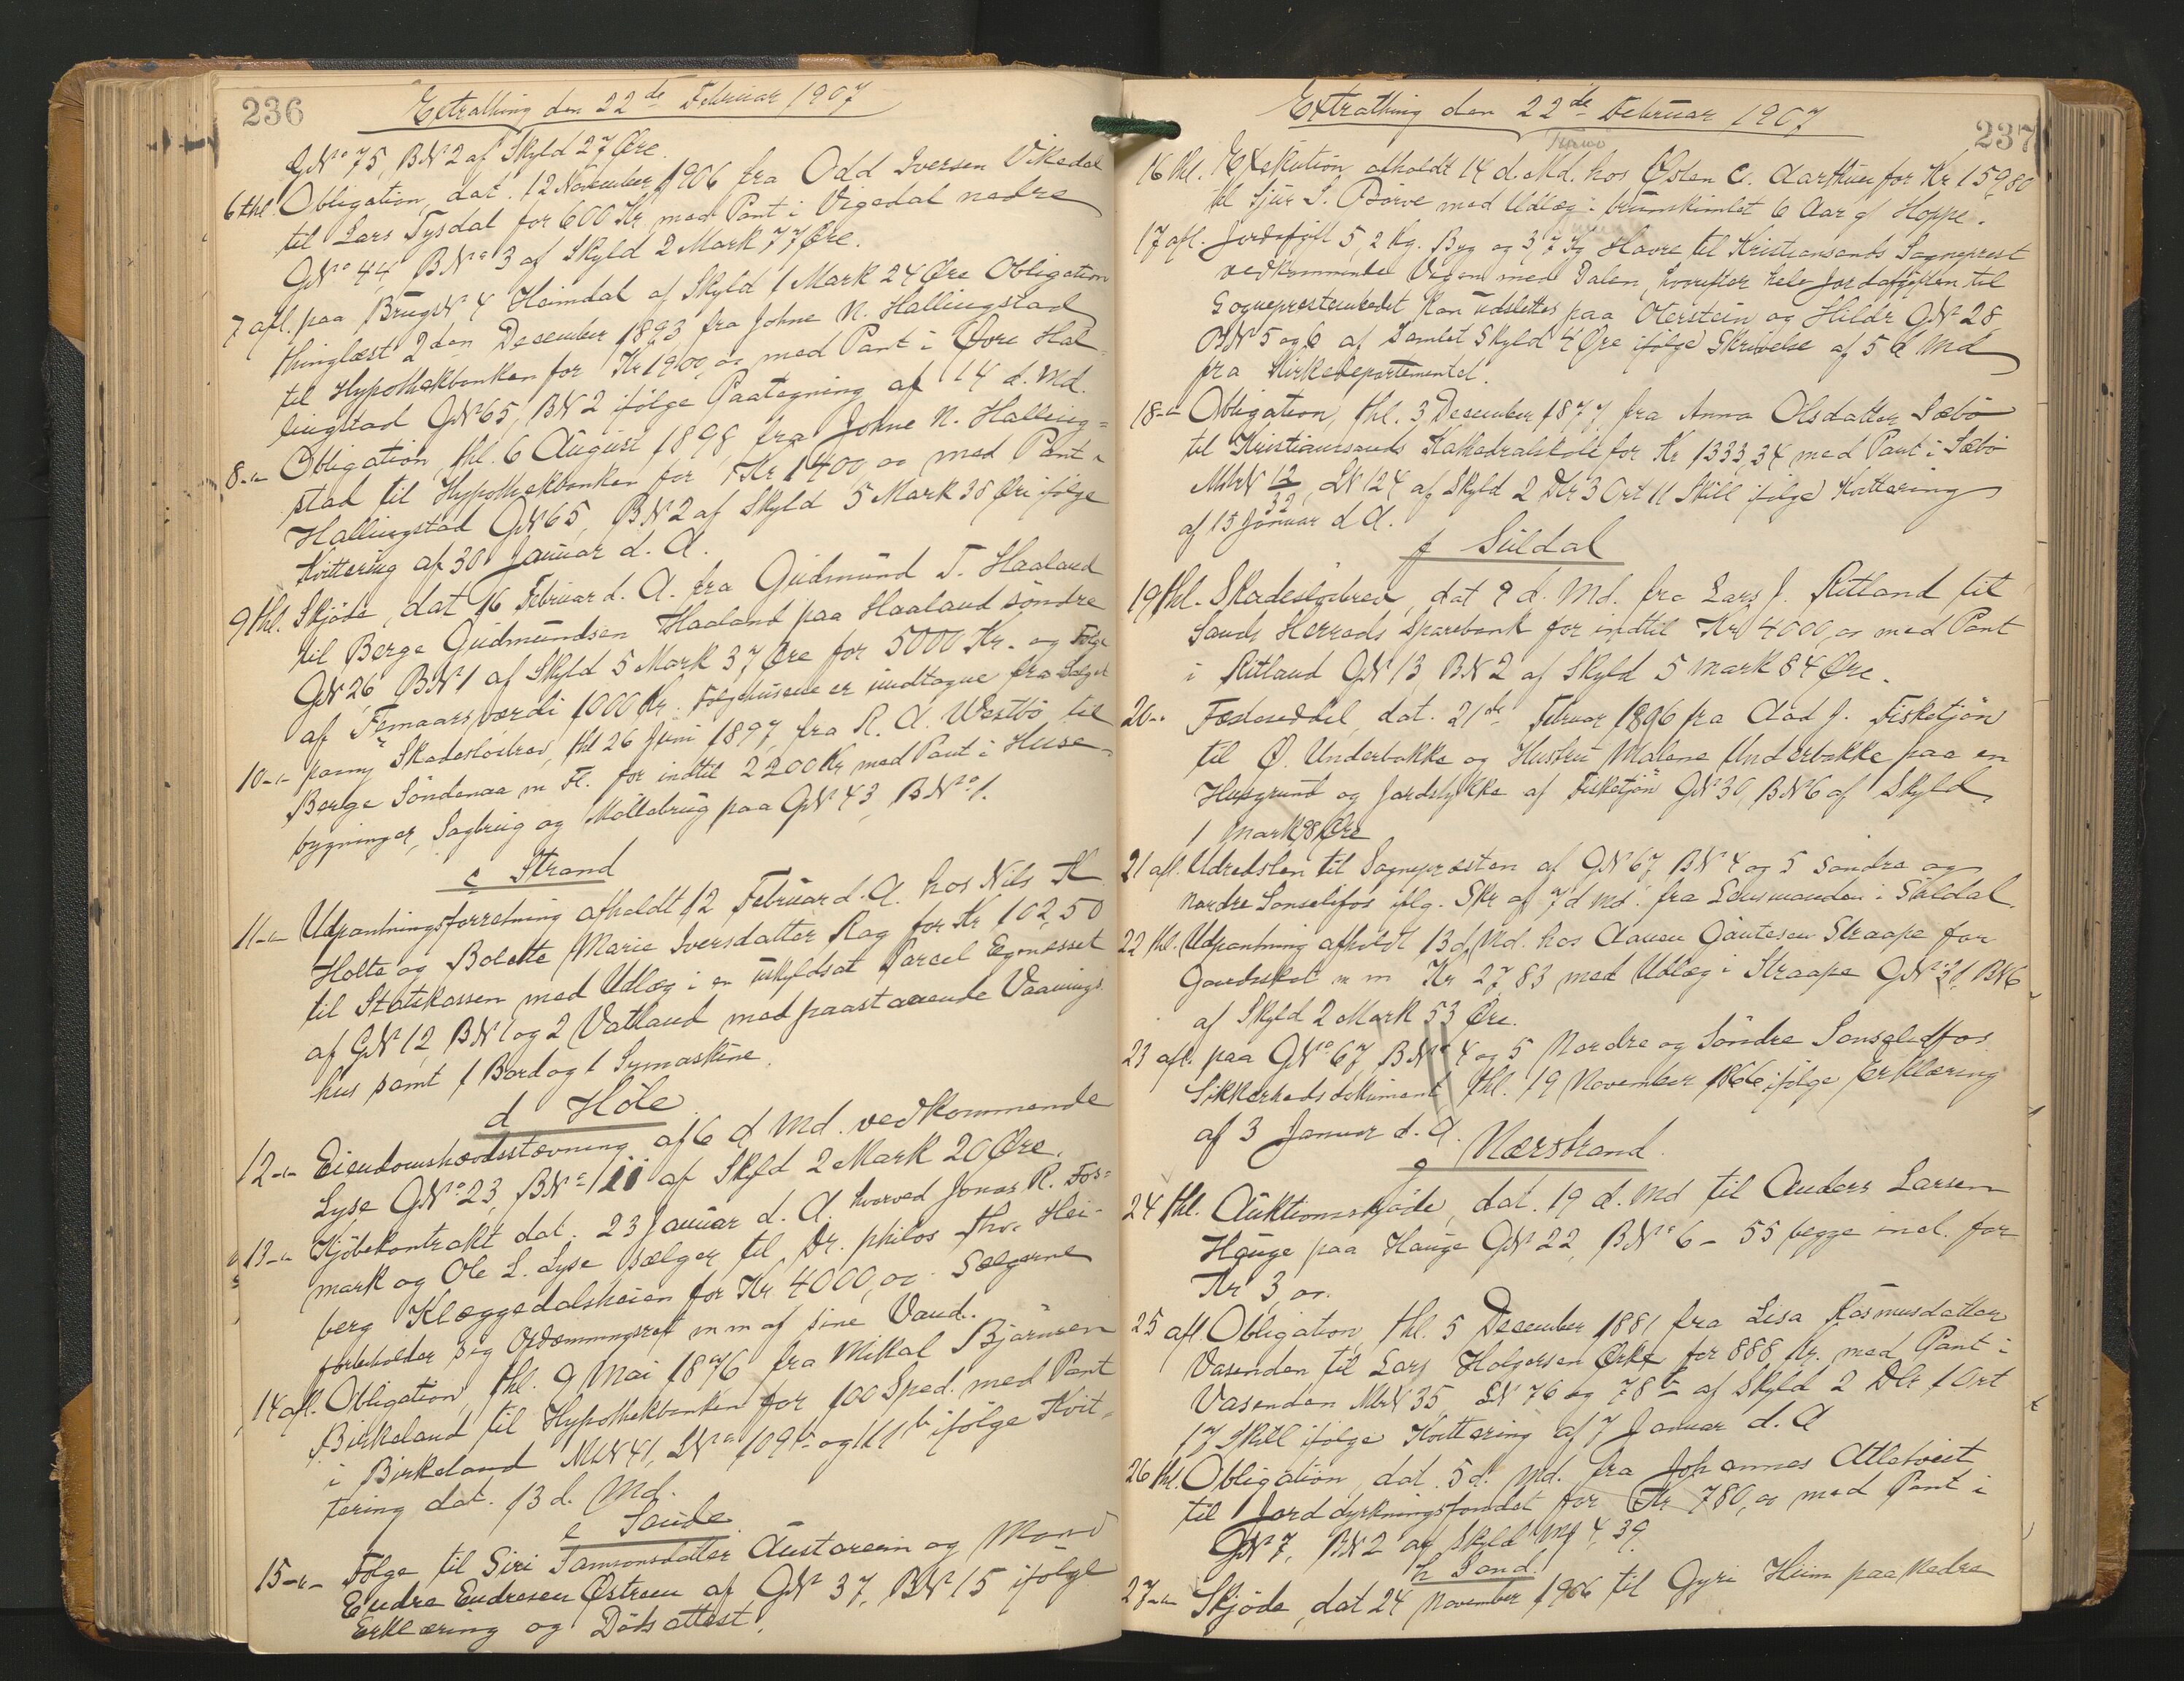 236
Extrathing den 22de Februar 1907
GNo 75, BN 2 af Skyld 27 Øre.
6 thl. Obligation, dat. 12 November 1906 fra Odd Iversen Vikedal
til Lars Tysdal for 600 Kr med Pant i Vigedal nedre
GNo 44 BNo 3 af Skyld 2 Mark 77 Øre.
7 afl. paa BrugsN 4 Heimdal af Skyld 1 Mark 24 Øre Obligation
thinglæst 2den December 1893 fra Johne N. Hallingstad
til Hypothekbanken for Kr 1900,00 med Pant i Øvre Hal-
lingstad GN 65, BN 2 ifølge Paategning af 14 d. Md.
8 -"- Obligation, thl. 6 August 1898 fra Johne N. Halling=
stad til Hypothekbanken for Kr 1400,00 med Pant i
Hallingstad GN 65, BN 2 af Skyld 5 Mark 38 Øre ifølge
Kvittering af 30 Januar d. A.
9 thl. Skjøde, dat 16 Februar d. A. fra Gudmund T. Haaland
til Berge Gudmundsen Haaland paa Haaland søndre
GN 26 BN 1 af Skyld 5 Mark 37 Øre for 5000 Kr. og Følge
af Femaarsværdi 1000 Kr. Følgehusene er undtagne fra Salget
10 -"- Skadesløsbrev, thl 26 Juni 1897 fra R. A. Westbø til
Berge Søndenaa m Fl. for indtil 2200 Kr med Pant i Huse-
bygninger, Sagbrug og Møllebrug paa GN 43, BNo 1.
c Strand
11 -"- Udpantningsforretning afholdt 12 Februar d. A. hos Nils K
Holte og Bolette Marie Iversdatter Rag for Kr 102,50
til Statskassen med Udlæg i en uskyldsat Parcel Egenæsset
af GN 12, BN 1 og 2 Vatland med paastaaende Vaanings-
hus samt 1 Bord og 1 Symaskine.
d Høle
12 -"- Eiendomshævdsstævning af 6 d Md. vedkommende
Lyse GNo 23, BNo 1 af Skyld 2 Mark 20 Øre.
13 -"- Kjøbekontrakt dat. 23 Januar d. A. hvorved Jonas R. Fos=
mark og Ole L. Lyse sælger til Dr. philos Thv. Hei-
berg Klæggedalsheien for Kr 4000,00. Sælgerne
forbeholder sig Opdæmningsret m m af sine Vand.
14 afl. Obligation, thl. 9 Mai 1876 fra Mikal Bjørnsen
Birkeland til Hypothekbanken for 100 Sped. med Pant
i Birkeland MtrN 41, LNo 109b og 111b ifølge Kvit-
tering dat. 13 d. Md.
e Saude
15 -"- Følge til Siri Samsonsdatter Austareim og Mand
Endre Endresen Østreim af GNo 37, BN 15 ifølge
Erklæring og Dødsattest.
Extrathing den 22de Februar 1907
237
16 thl. Exekution afholdt 14 d. Md. hos Østen C. Aarthun for Kr 159,80
til Sjur S. Børve med Udlæg i brunskimlet 6 Aar gl Hoppe.
17 afl. Jordafgift 5,2 Kg. Byg og 37 Kg Havre til Kristiansands Sogneprest
vedkommende Vigen med Dalen, hvorefter hele Jordafgiften til
Sogneprestembedet kan udslettes paa Oterstein og Hilde GN 28
BN 5 og 6 af samlet Skyld 4 Øre ifølge Skrivelse af 5 d Md
fra Kirkedepartementet.
18 -"- Obligation, thl. 3 December 1877 fra Anna Olsdatter Sæbø
til Kristianssands Kathedralskole for Kr 1333,34 med Pant i Sæbø
MtrN 12/32, LN 124 af Skyld 2 Dlr 3 Ort 11 Skill ifølge Kvittering
af 15 Januar d A.
f Suldal
19 thl. Skadesløsbrev, dat 9 d. Md. fra Lars J. Ritland til
Sands Herreds Sparebank for indtil Kr 4000,00 med Pant
i Ritland GN 13 BN 2 af Skyld 5 Mark 84 Øre.
20 -"- Festeseddel, dat. 21de Februar 1896 fra Aad J. Fisketjøn
til O. Underbakke og Hustru Malene Underbakke paa en
Husgrund og Jordstykke af Fisketjøn GN 30, BN 6 af Skyld
1 Mark 98 Øre
21 afl. Udredslen til Sognepræsten af GN 67 BN 4 og 5 Søndre og
Nordre ifølg. Skr af 7 d Md. fra Lensmanden i Suldal.
22 thl. Udpantning afholdt 13 d Md. hos Aanen Gautesen Straape for
m m Kr 27,83 med Udlæg i Straape GN 31, BN 6
af Skyld 2 Mark 53 Øre.
23 afl. paa GNo 67 BNo 4 og 5 Nordre og Søndre
Sikkerhedsdokument thl. 19 November 1866 ifølge Erklæring
af 3 Januar d. A.
g Nærstrand.
24 thl. Auktionsskjøde, dat. 19 d. Md til Anders Larsen
Hauge paa Hauge GN 22, BNo 6 - 55 begge incl. for
Kr 3,00.
25 afl. Obligation, thl. 5 December 1881 fra Lisa Rasmusdatter
Vasenden til Lars Holgersen Ørke for 888 Kr. med Pant i
Vasenden MtrN 35 LN 76 og 78b af Skyld 2 Dlr 1 Ort
17 Skill ifølge Kvittering af 7 Januar d. A
26 thl. Obligation, dat. 5 d. Md. fra Johannes Atletveit
til Jorddyrkningsfondet for Kr 780,00 med Pant i
GN 7, BN 2 af Skyld Mk 4,39.
h Sand.
27 -"- Skjøde, dat 24 November 1906 til Gyri Hiim paa Nedre